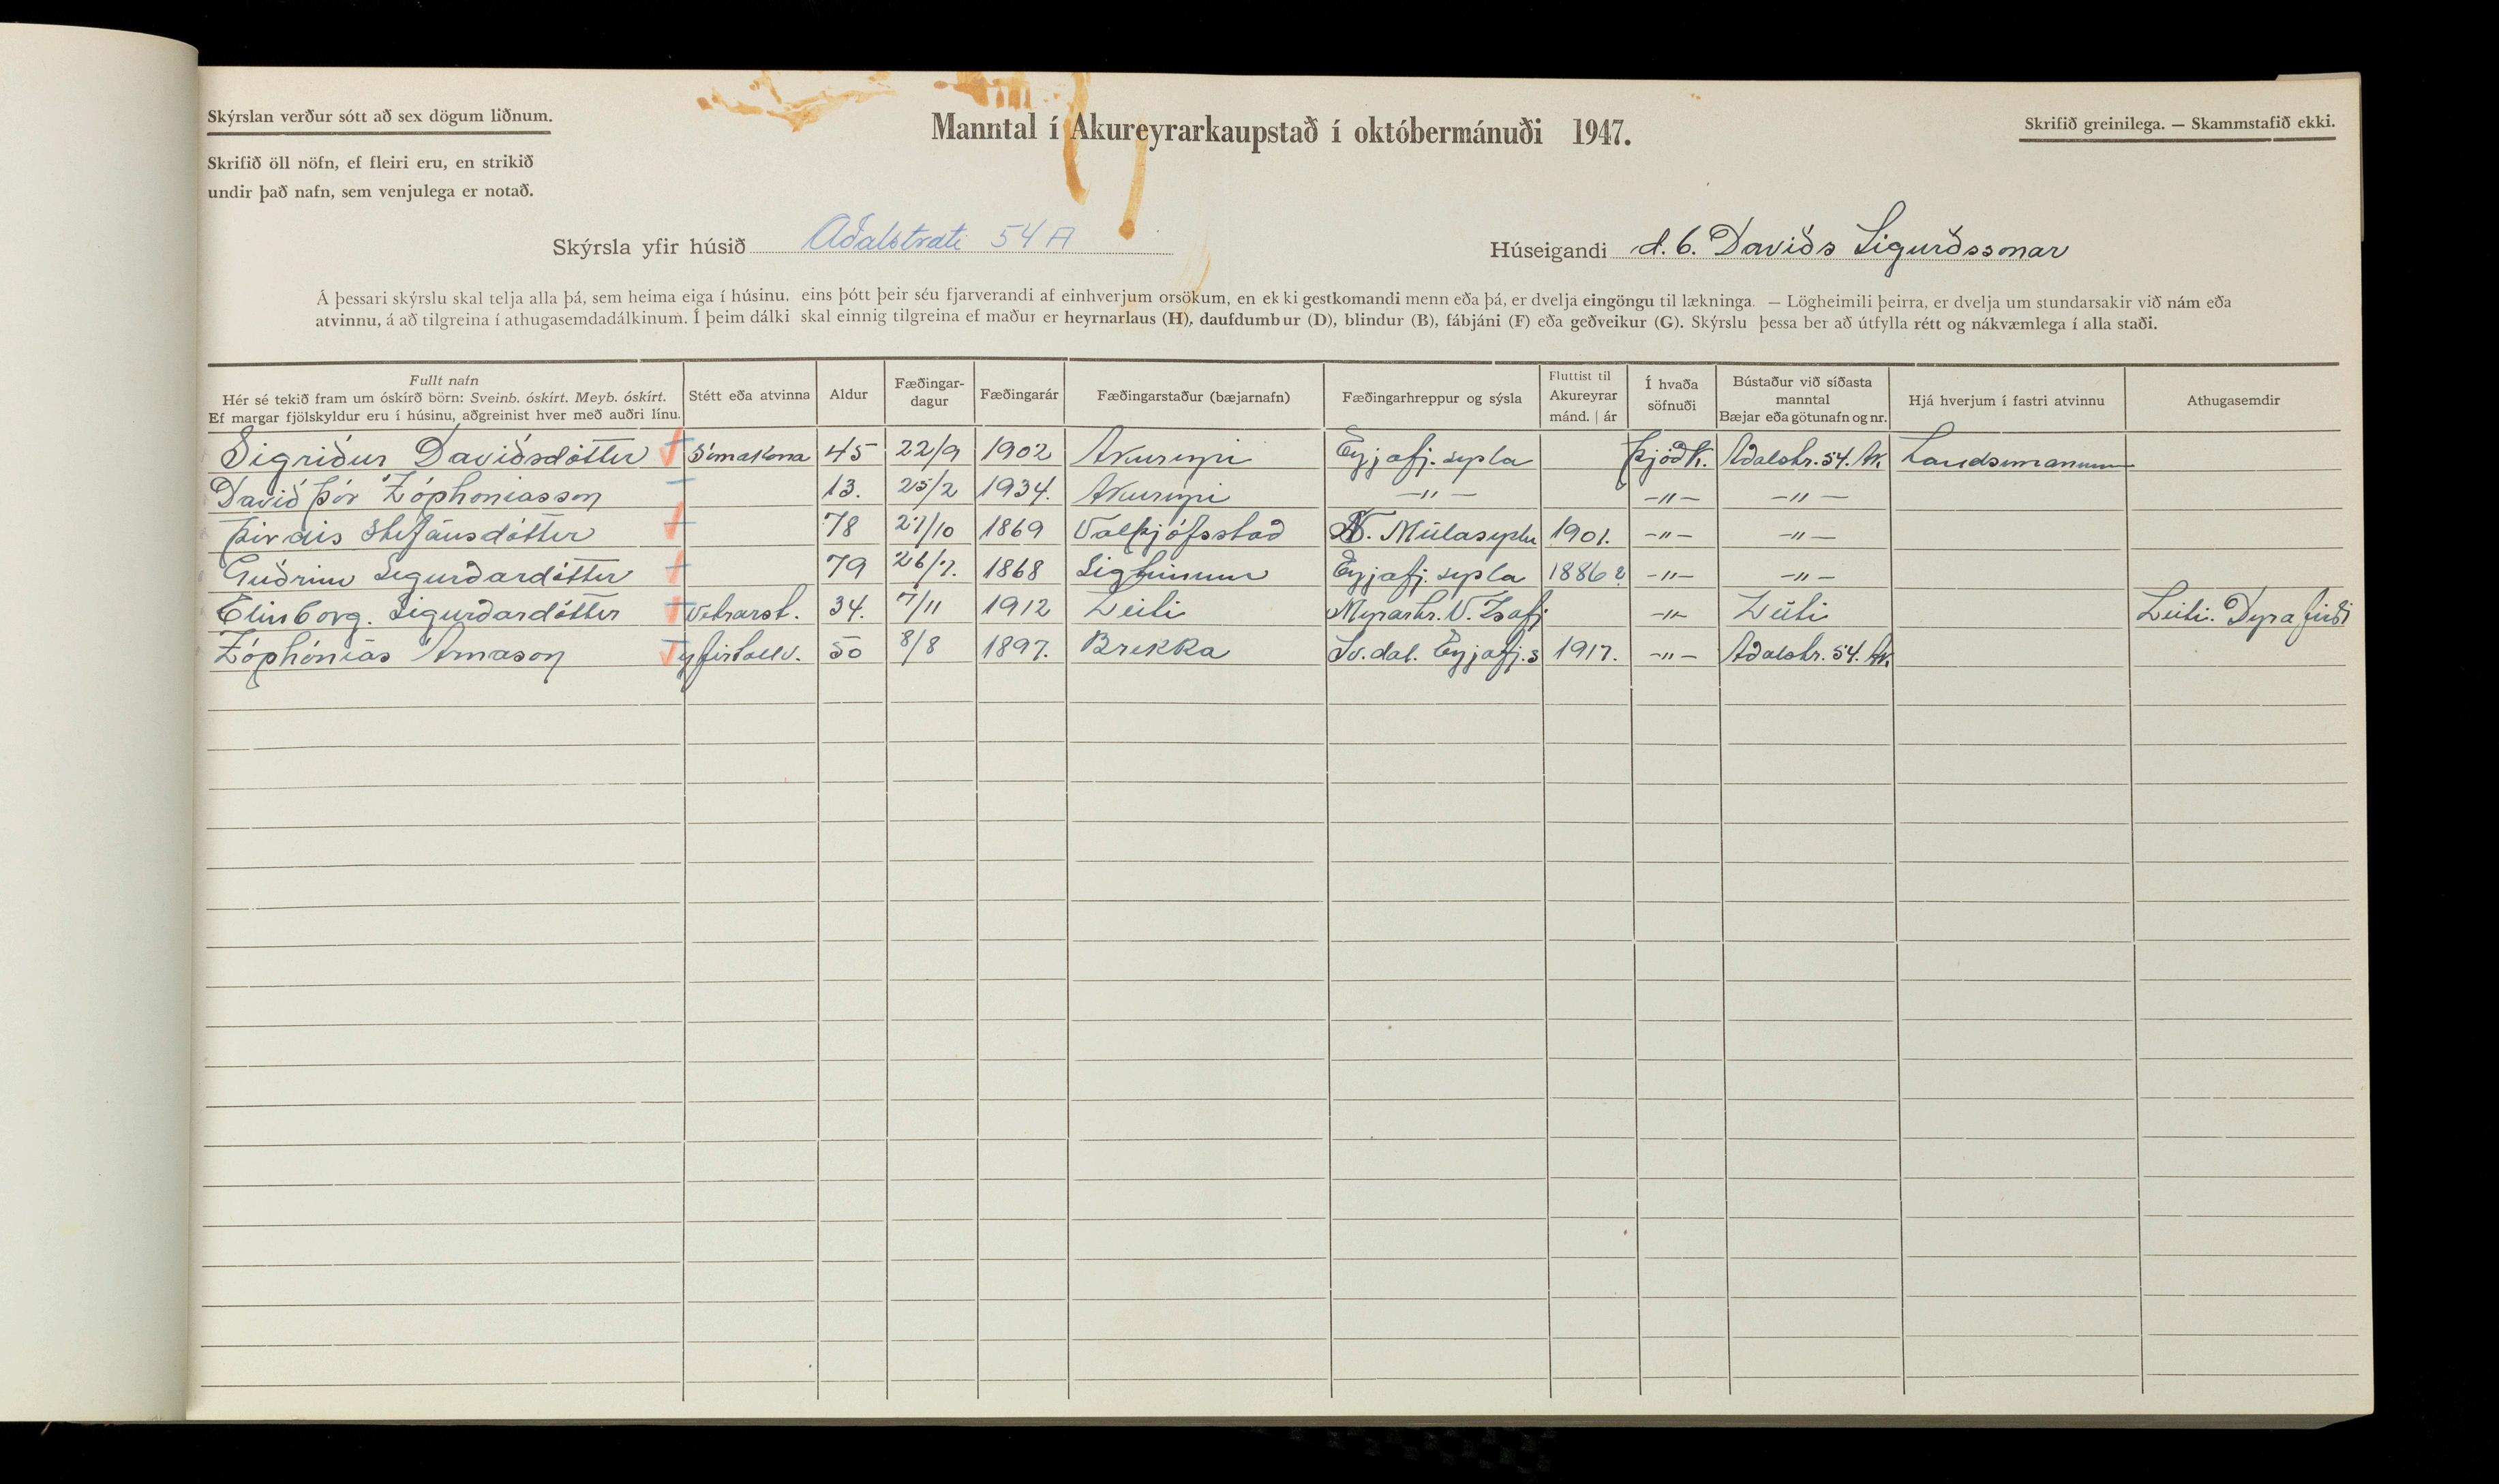 Skýrslan verður sótt að sex dögum liðnum.
Skrifið öll nöfn, ef fleiri eru, en strikið
undir það nafn, sem venjulega er notað.
Manntal í Akureyrarkaupstað í októbermánuði 1947.
Skrifið greinilega. — Skammstafið ekki.
Skýrsla yfir húsið Aðalstræti 54 A
Húseigandi d.b. Davíðs Sigurðssonar
Á þessari skýrslu skal telja alla þá, sem heima eiga í húsinu, eins þótt þeir séu fjarverandi af einhverjum orsökum, en ekki gestkomandi menn eða þá, er dvelja eingöngu til lækninga. — Lögheimili þeirra, er dvelja um stundarsakir við nám eða
atvinnu, á að tilgreina í athugasemdadálkinum. Í þeim dálki skal einnig tilgreina ef maður er heyrnarlaus (H), daufdumbur (D), blindur (B), fábjáni (F) eða geðveikur (G). Skýrslu þessa ber að útfylla rétt og nákvæmlega í alla staði.
Fullt nafn
Hér sé tekið fram um óskírð börn: Sveinb. óskírt. Meyb. óskírt.
Ef margar fjölskyldur eru í húsinu, aðgreinist hver með auðri línu.
Stétt eða atvinna
Aldur
Fæðingar-
dagur
Fæðingarár
Fæðingarstaður (bæjarnafn)
Fæðingarhreppur og sýsla
Fluttist til
Akureyrar
mánd. | ár
Í hvaða
söfnuði
Bústaður við síðasta
manntal
Bæjar eða götunafn og nr.
Hjá hverjum í fastri atvinnu
Athugasemdir
Sigríður Davíðsdóttir Símakona 45 22/9 1902 Akureyri Eyjafj. sýsla Þjóðk. Aðalstr. 54. Ak. Landsímanum
Davíð Þór Zóphoníasson 13. 25/2 1934. Akureyri —"— —"— —"—
Þórdís Stefánsdóttir 78 27/10 1869 Valþjófsstað N. Múlasýslu 1901. —"— —"—
Guðrún Sigurðardóttir 79 26/7. 1868 Eyjafj. sýsla 1886? —"— —"—
Elinborg. Sigurðardóttir Vetrarst. 34. 7/11 1912 Leiti Mýrarhr. V. Ísafj —"— Leiti Leiti. Dýrafirði
Zóphónías Árnason yfirtollv. 50 8/8 1897. Brekka Sv.dal. Eyjafj.s 1917. —"— Aðalstr. 54. Ak.